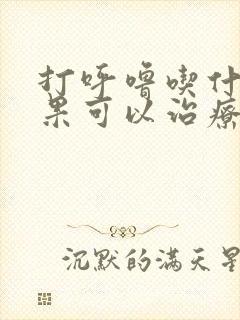 打呼噜喫什
果可以治療
沉默的满天星